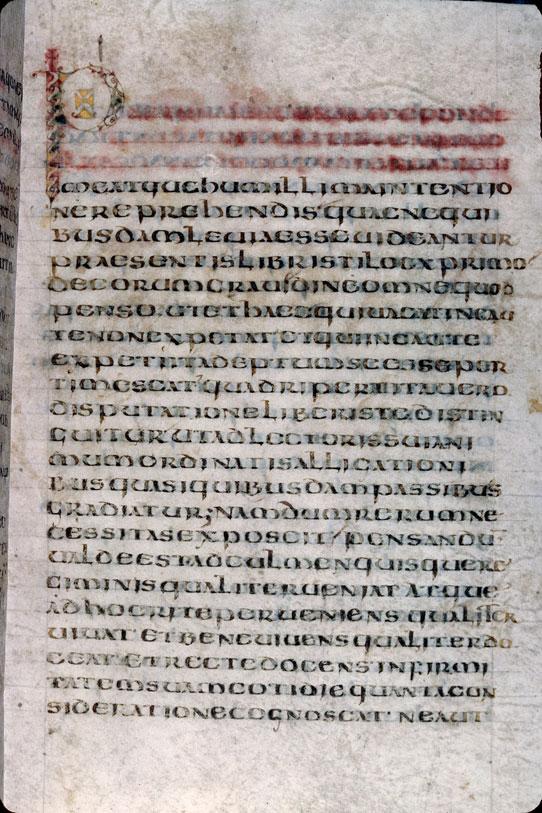 IMEATQUEHUMILLIMAINTENTIO
NEREPREHENDIS'QUAENEQUI
BUSDAMLEUIAESSEUIDEANTUR
PRAESENTISLIBRISTILOEXPRIMO
DEEORUMGRAUIDINEOMNEQUOD
PENSO.UTETHAECQUIUACATINCAU
TENONEXPETAT'ETQUIINCAUTE
EXPETIITADEPTUMSEESSEPER
TIMESCAT'QUADRIPERTITAUERO
DISPUTATIONELIBERISTEDISTIN
GUITUR'UTADLECTORISSUIANI
MUMORDINATISALLICATIONI
BUSQUASIQUIBUSDAMPASSIBUS
GRADIATUR;NAMDUMRERUMNE
CESSITASEXPOSCIT'PENSANDU
UALDEESTADCULMENQUISQUERE
GIMINISQUALITERUENIAT ATQUE
ADHOCRITEPERUENIENS QUALITER
UIUAT ETBENEUIUENSQUALITERDO
CEAT ETRECTEDOCENSINFIRMI
TATEMSUAMCOTIDIEQUANTACON
SIDERATIONECOGNOSCAT' NEAUT